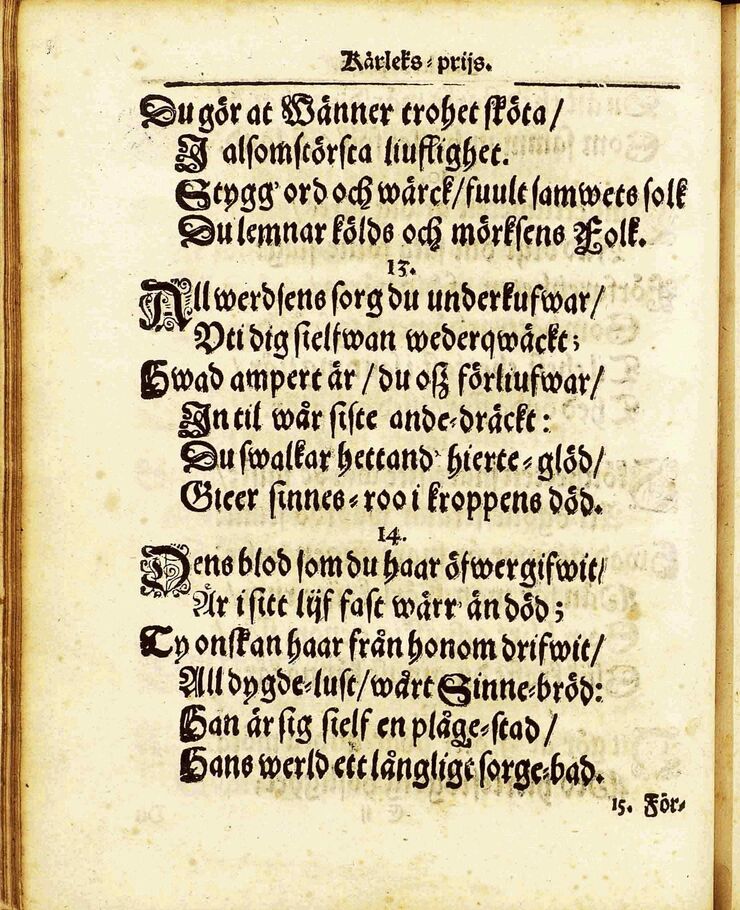 Kärleks-prijs.
Du gör at Wänner trohet sköta/
I alsomstörsta liufflighet.
Stygg' ord och wärck/fuult samwets solk
Du lemnar kölds och mörksens Folk.
13.
All werdsens sorg du underkufwar/
Uti dig sielfwan wederqwäckt;
Hwad ampert är / du oß förliufwar/
In til wår siste ande-dräckt:
Du swalkar hettand' hierte-glöd/
Gieer sinnes-roo i kroppens död.
14.
Dens blod som du haar öfwergifwit/
Är i sitt lijf fast wärr' än död;
Ty onskan haar från honom drifwit/
All dygde-lust/wårt Sinne-bröd:
Han är sig sielf en plåge-stad/
Hans werld ett långligt sorge-bad.
15. För-